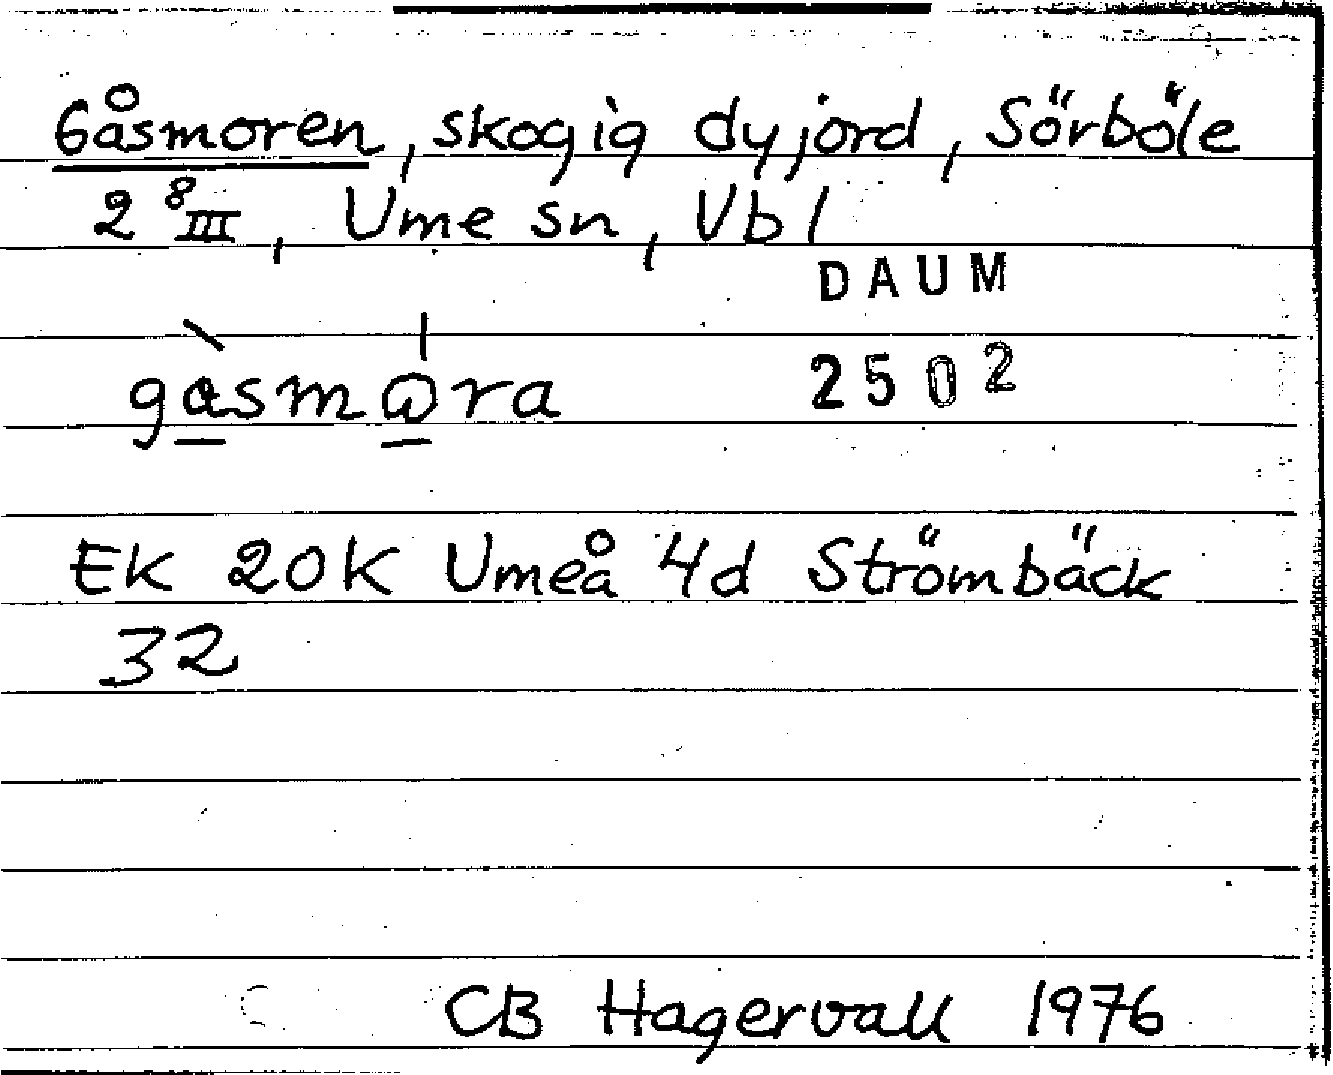 Gåsmoren, skogig dyjord, Sörböle
2 8 III, Ume sn, Vbl
DAUM
gasmωra
2502
EK 20K Umeå 4d Strömbäck
32
CB Hagervall 1976